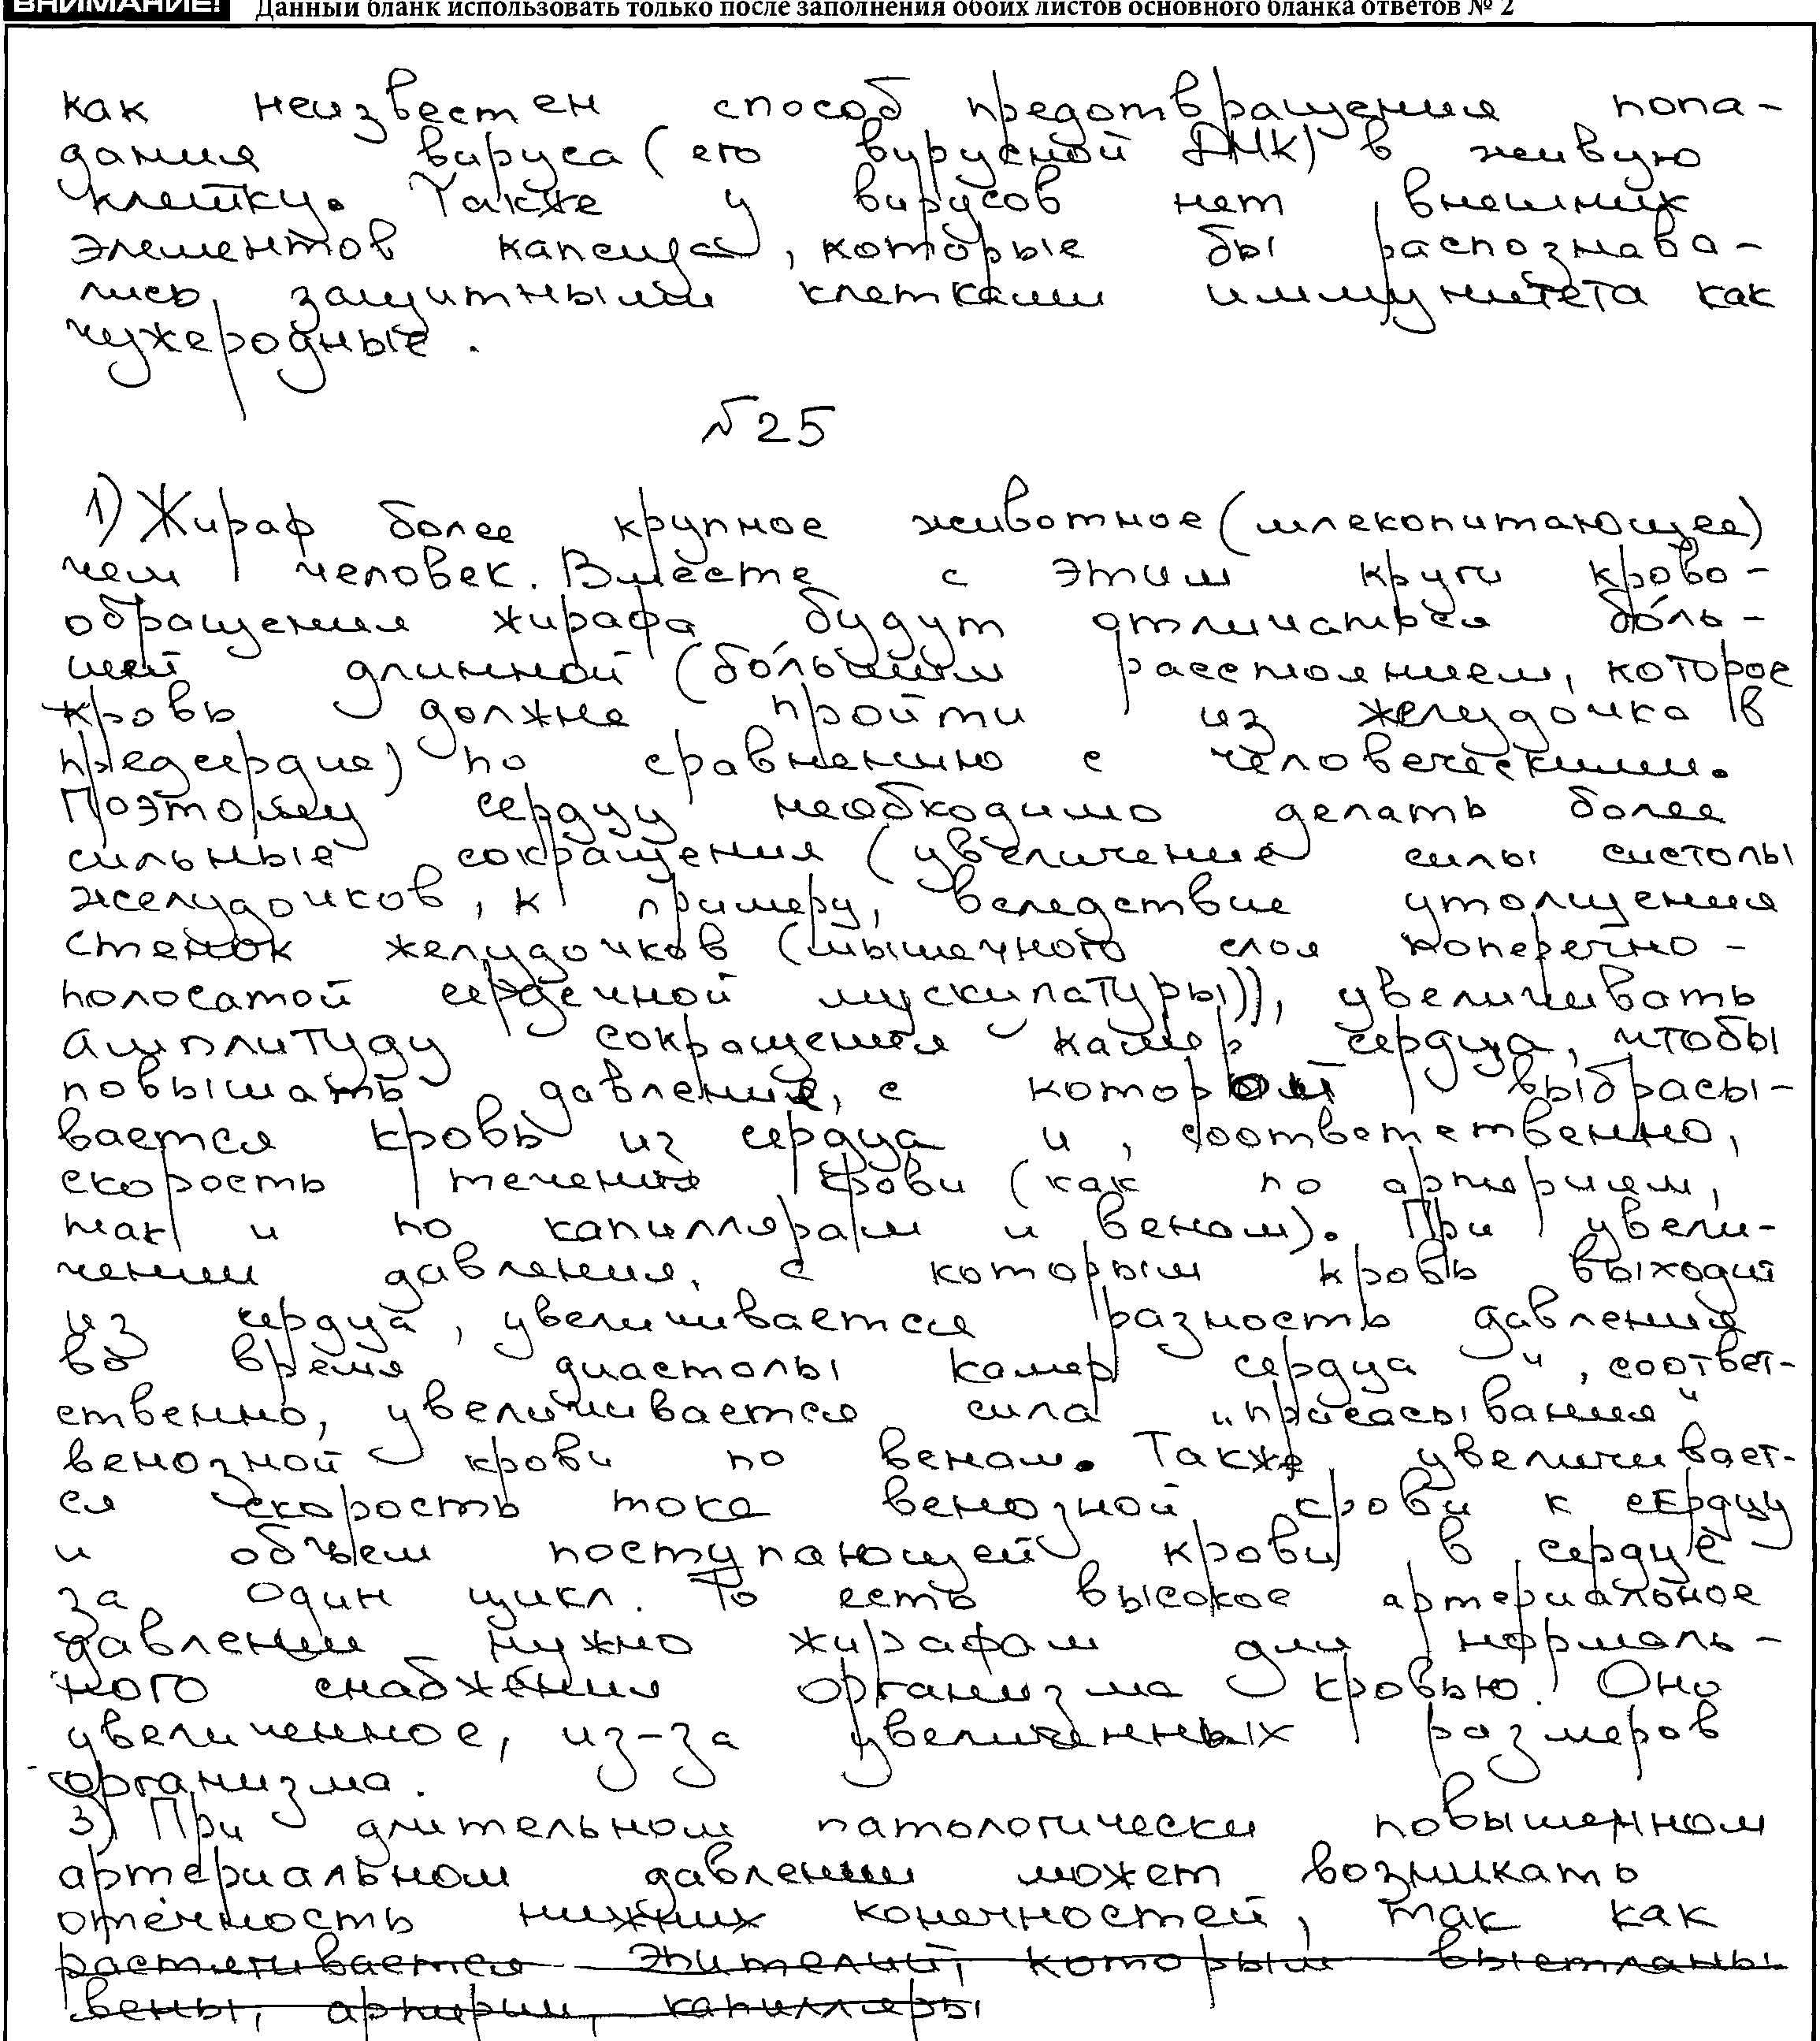 ВНИМАНИЕ! Данный бланк использовать только после заполнения обоих листов основного бланка ответов № 2
как неизвестен способ предотвращения попа-
дания вируса (его вурусной ДНК) в живую
клетку. Также у вирусов нет внешних
элементов капсида, которые бы распознава-
лись защитными клетками иммунитета как
чужеродные.
№25
1) Жираф более крупное животное (млекопитающее)
чем человек. Вместе с этим круги крово-
обращения жирафа будут отличаться боль-
шей длинной (большим расстоянием, которое
кровь должна пройти из желудочка в
предсердие) по сравнению с человеческими.
Поэтому сердцу необходимо делать более
сильные сокращения (увеличение силы систолы
желудочков, к примеру, вследствие утолщения
стенок желудочков (мышечного слоя поперечно-
полосатой сердечной мускулатуры)), увеличивать
амплитуду сокращения камер сердца, чтобы
повышать давление, с которым выбрасы-
вается кровь из сердца и, соответственно,
скорость течения крови (как по артериям,
так и по капиллярам и венам). При увели-
чении давления, с которым кровь выходит
из сердца, увеличивается разность давления
во время диастолы камер сердца и, соответ-
ственно, увеличивается сила "присасывания"
венозной крови по венам. Также увеличивает-
ся скорость тока венозной крови к сердцу
и объем поступающей крови в сердце
за один цикл. То есть высокое артериальное
давление нужно жирафам для нормаль-
ного снабжения организма кровью. Оно
увеличенное, из-за увеличенных размеров
организма.
3) При длительном патологически повышенном
артериальном давлении может возникать
отёчность нижних конечностей, так как
растягивается эпителий, которым выстланы
вены, артерии, капилляры